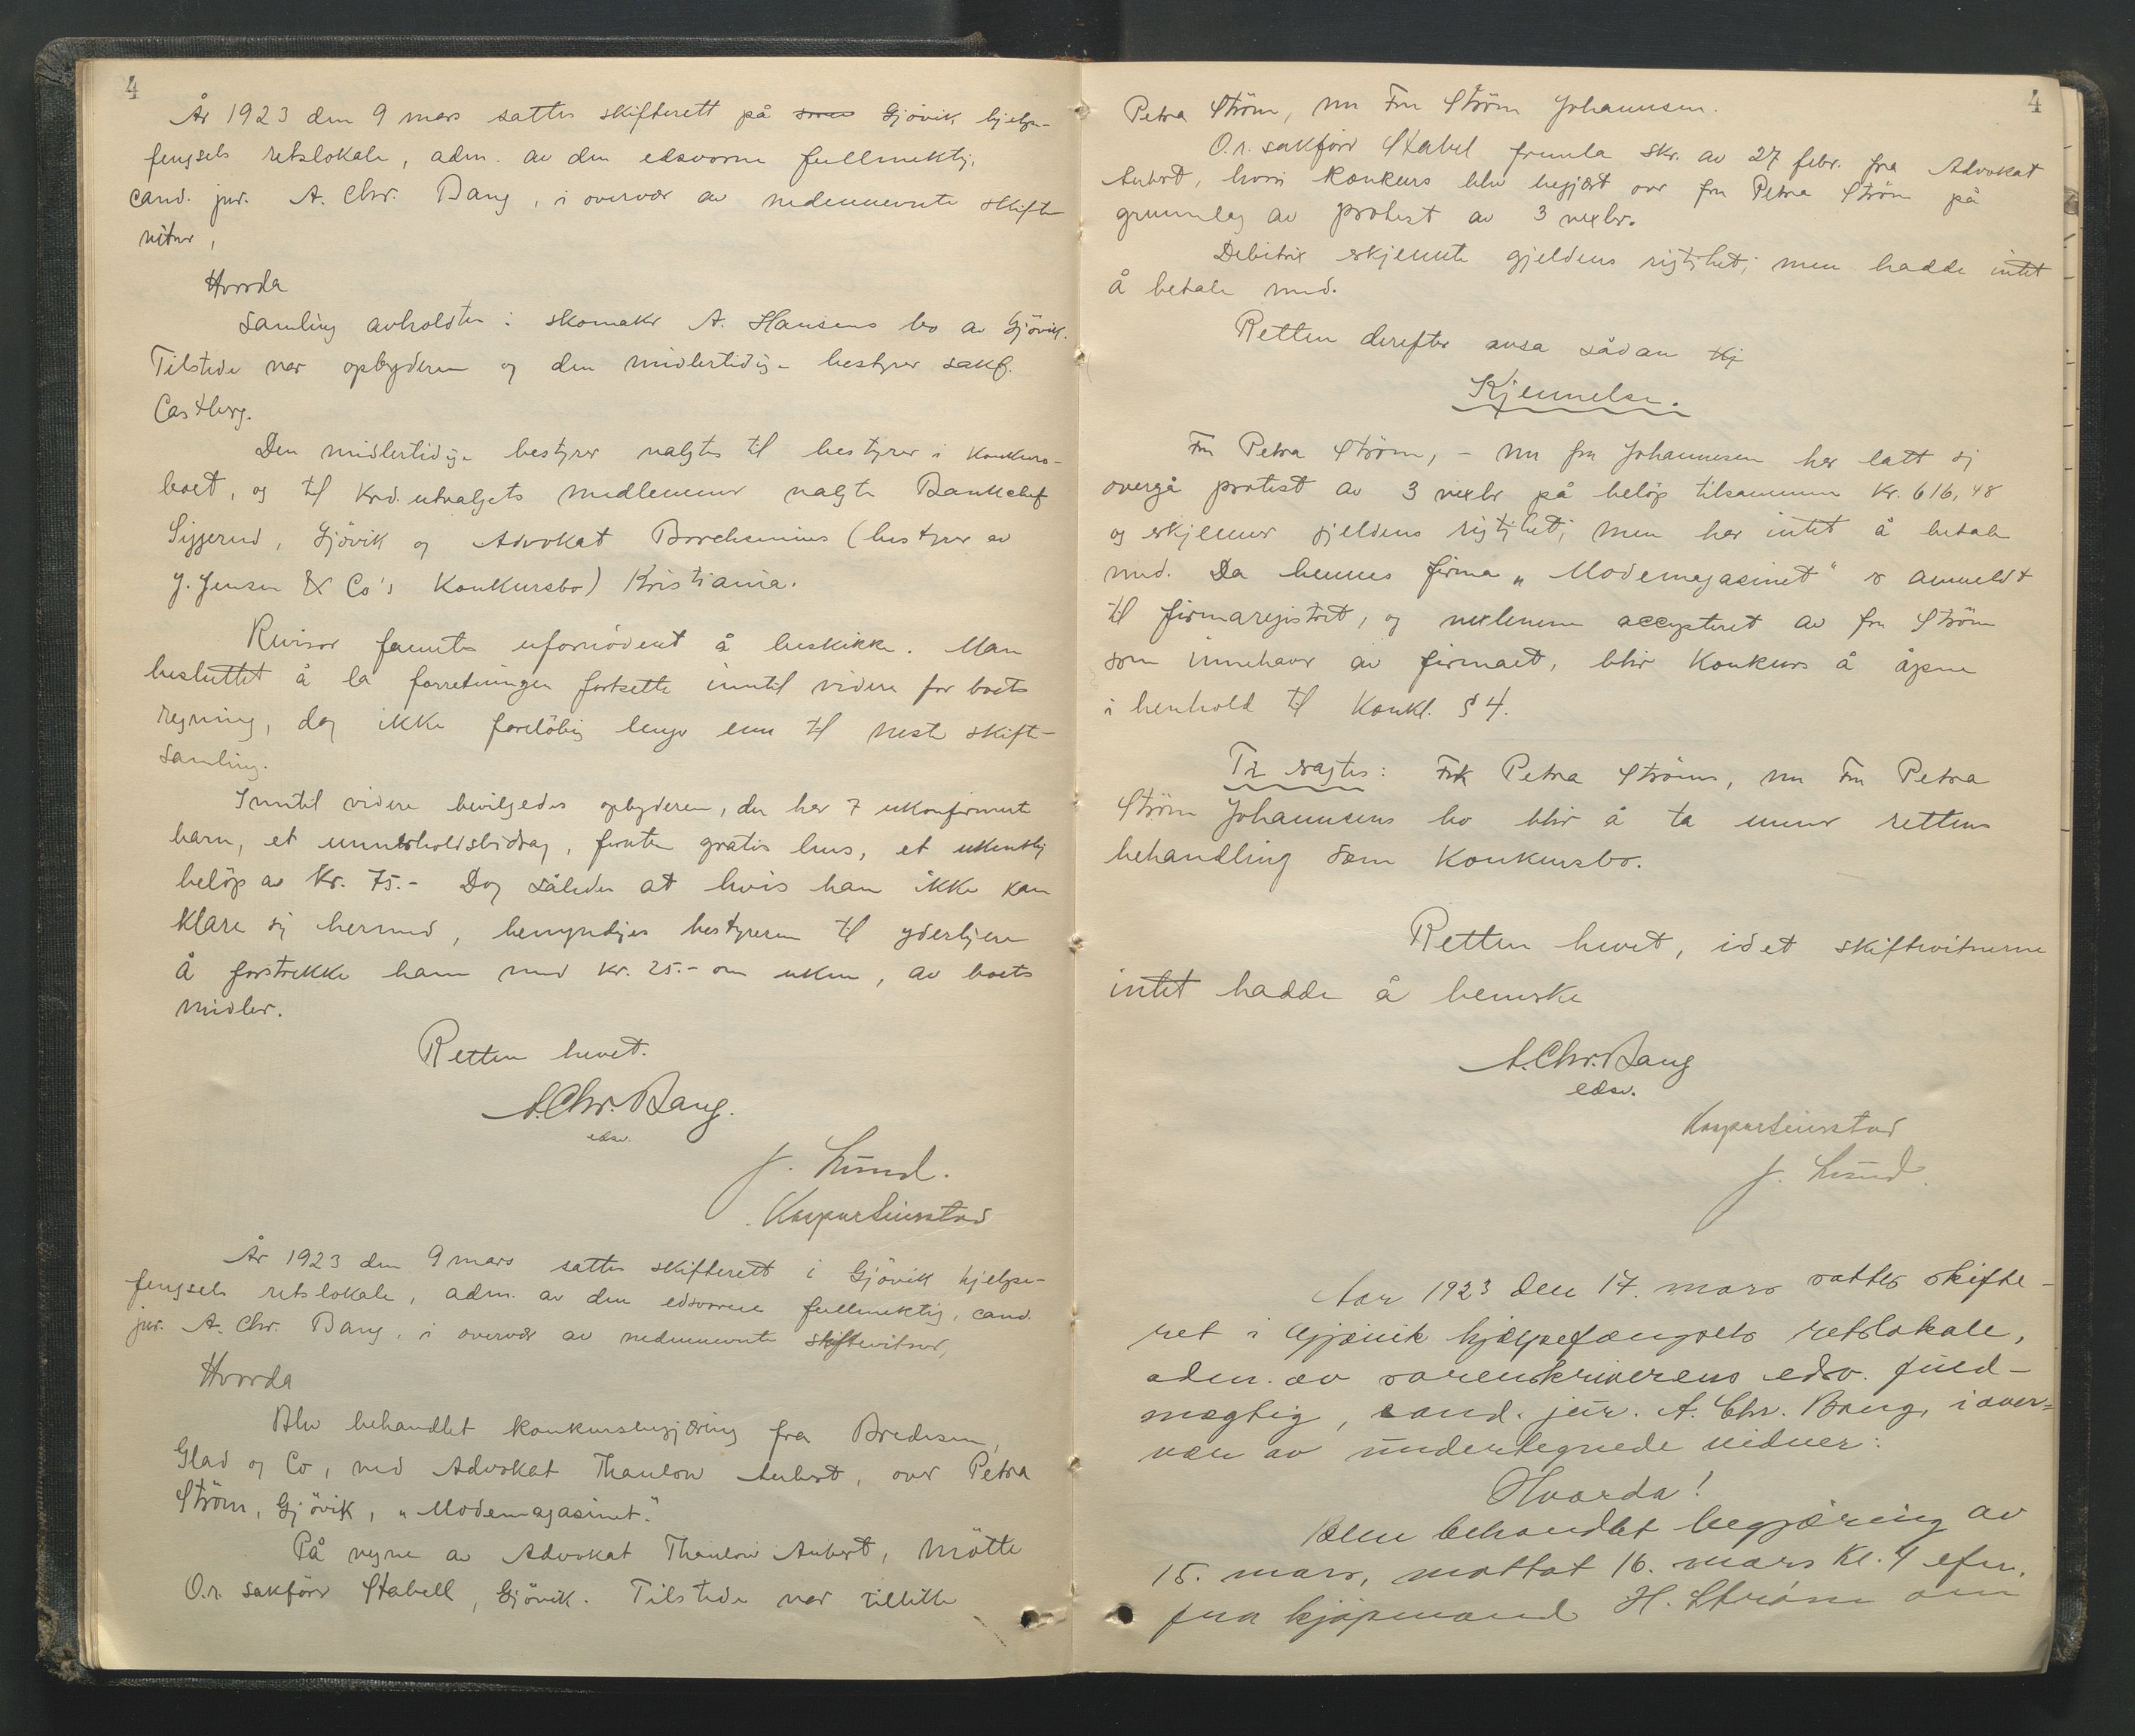 4
År 1923 den 9 mars sattes skifterett på Gjövik hjelpe-
fengsels retslokale, adm. av den edsvorne fullmektig,
cand. jur. A. Chr. Bang, i overvær av nedennevnte skifte
vitner,
Hvorda
Samling avholdtes i skomaker A. Hansens bo av Gjövik.
Tilstede var opbyderen og den midlertidige bestyrer sakf.
Castberg.
Den midlertidige bestyrer valgtes til bestyrer i konkurs-
boet, og til kred.utvalgets medlemmer valgtes Bankchef
Siggerud, Gjövik og Advokat Borchsenius (bestyrer av
J. Jensen & Co's Konkursbo) Kristiania.
Revisor fantes ufornödent å beskikke. Man
besluttet å la forretningen fortsette inntil videre for boets
regning, dog ikke forelöbig lenger enn til neste skifte-
samling.
Inntil videre bevilgedes opbyderen, der har 7 ukonfirmerte
barn, et underholdsbidrag, foruten gratis hus, et ukentlig
belöp av Kr. 75.- Dog således at hvis han ikke kan
klare sig hermed, bemyndiges bestyreren til yderligere
å forstrekke ham med kr. 25.- om uken, av boets
midler.
Retten hevet.
A. Chr. Bang.
edsv.
J. Lund.
Kaspar
År 1923 den 9 mars sattes skifterett i Gjövik hjelpe-
fengsels retslokale, adm. av den edsvorne fullmektig, cand.
jur. A. Chr. Bang, i overvær av nedennevnte skiftevitner,
Hvorda
Blev behandlet konkursbegjæring fra Bredesen,
Glad og Co, ved Advokat Thaulow Aubert, over Petra
Ström, Gjövik, "Modemagasinet".
På vegne av Advokat Thaulow Aubert, mötte
O.r. sakförer Stabell, Gjövik. Tilstede var tillike
4
Petra Ström, nu Fru Ström Johannesen.
O.r. sakförer Stabel fremla skr. av 27 febr. fra Advokat
Aubert, hvori konkurs blev begjært over fru Petra Ström på
grunnlag av protest av 3 vexler.
Debitrix erkjennte gjeldens rigtighet; men hadde intet
å betale med.
Retten derefter avsa sådan Kj
Kjennelse.
Fru Petra Ström, - nu fru Johannesen har latt sig
overgå protest av 3 vexler på belöp tilsammen Kr. 616,48
og erkjenner gjeldens rigtighet; men har intet å betale
med. Da hennes firma "Modemagasinet" er anmeldt
til firmaregistret, og vexlenene accepteret av fru Ström
som innehaver av firmaet, blir Konkurs å åpne
i henhold til Konkl. § 4.
Ti eragtes: Frk Petra Ströms, nu Fru Petra
Ström Johannesens bo blir å ta under rettens
behandling som Konkursbo.
Retten hevet, idet skiftevitnerne
intet hadde å bemerke
A. Chr. Bang
edsv.
Kaspar
J. Lund.
Aar 1923 den 17. mars sattes skifte-
ret i Gjøvik hjælpefængsels retslokale,
adm. av sorenskriverens edsv. fuld-
mægtig, cand. jur. A. Chr. Bang, i over-
vær av undertegnede vidner:
Hvorda!
Blev behandlet begjæring av
15. mars, mottat 16. mars kl. 4 efm.
fra kjøpmand H. Strøm om